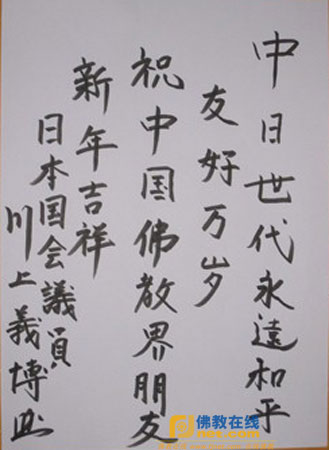 中日世代永遠和平
友好万岁
祝中国佛教界朋友
新年吉祥
日本国会議員
川上義博
佛教在线